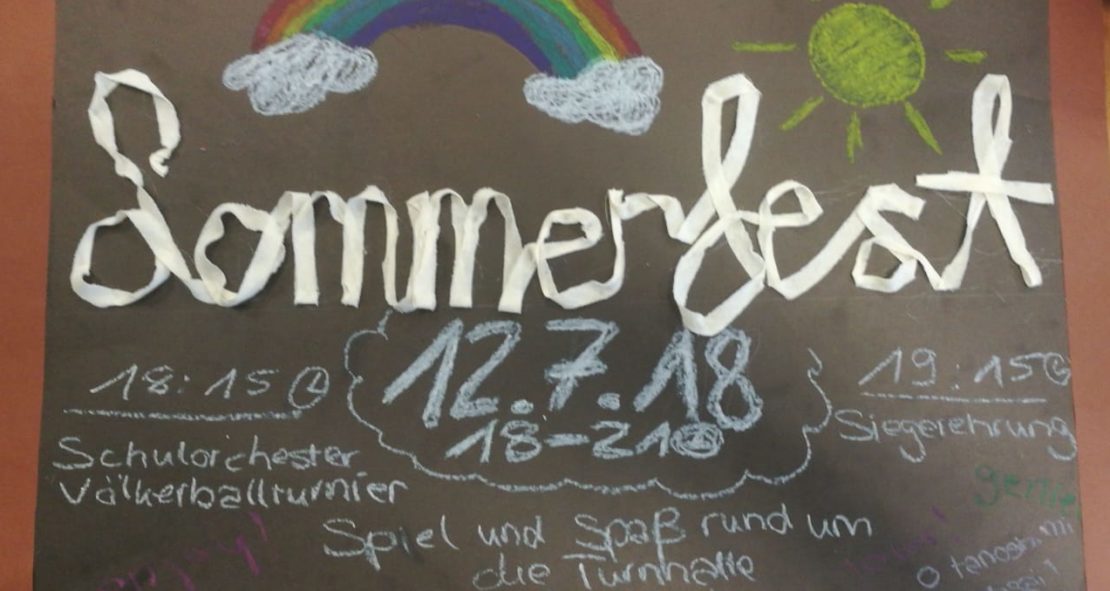 Sommerfest
12.7.18
18-21
18:15
Schulorchester
Völkerballturnier
19:15
Siegerehrung
Spiel und Spaß rund um
die Turnhalle